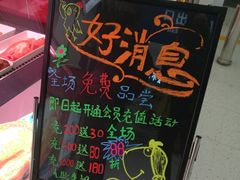 好消息
全场免费品尝
即日起开通会员充值活动
充200送30全场
充400送80 88折
充1000送180